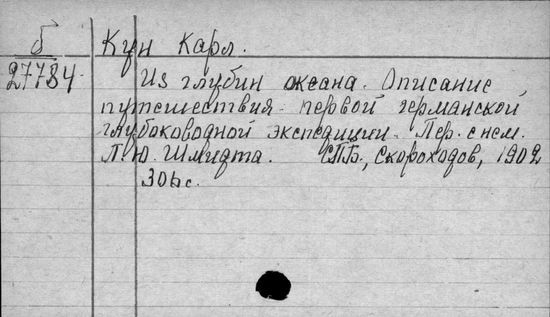 б Кун Карл.
27784 Из глубин океана. Описание
путешествия первой германской
глубоководной экспедиции. Пер. с нем.
П.Ю. Шмидта. СПБ., Скороходов, 1902
306 с.